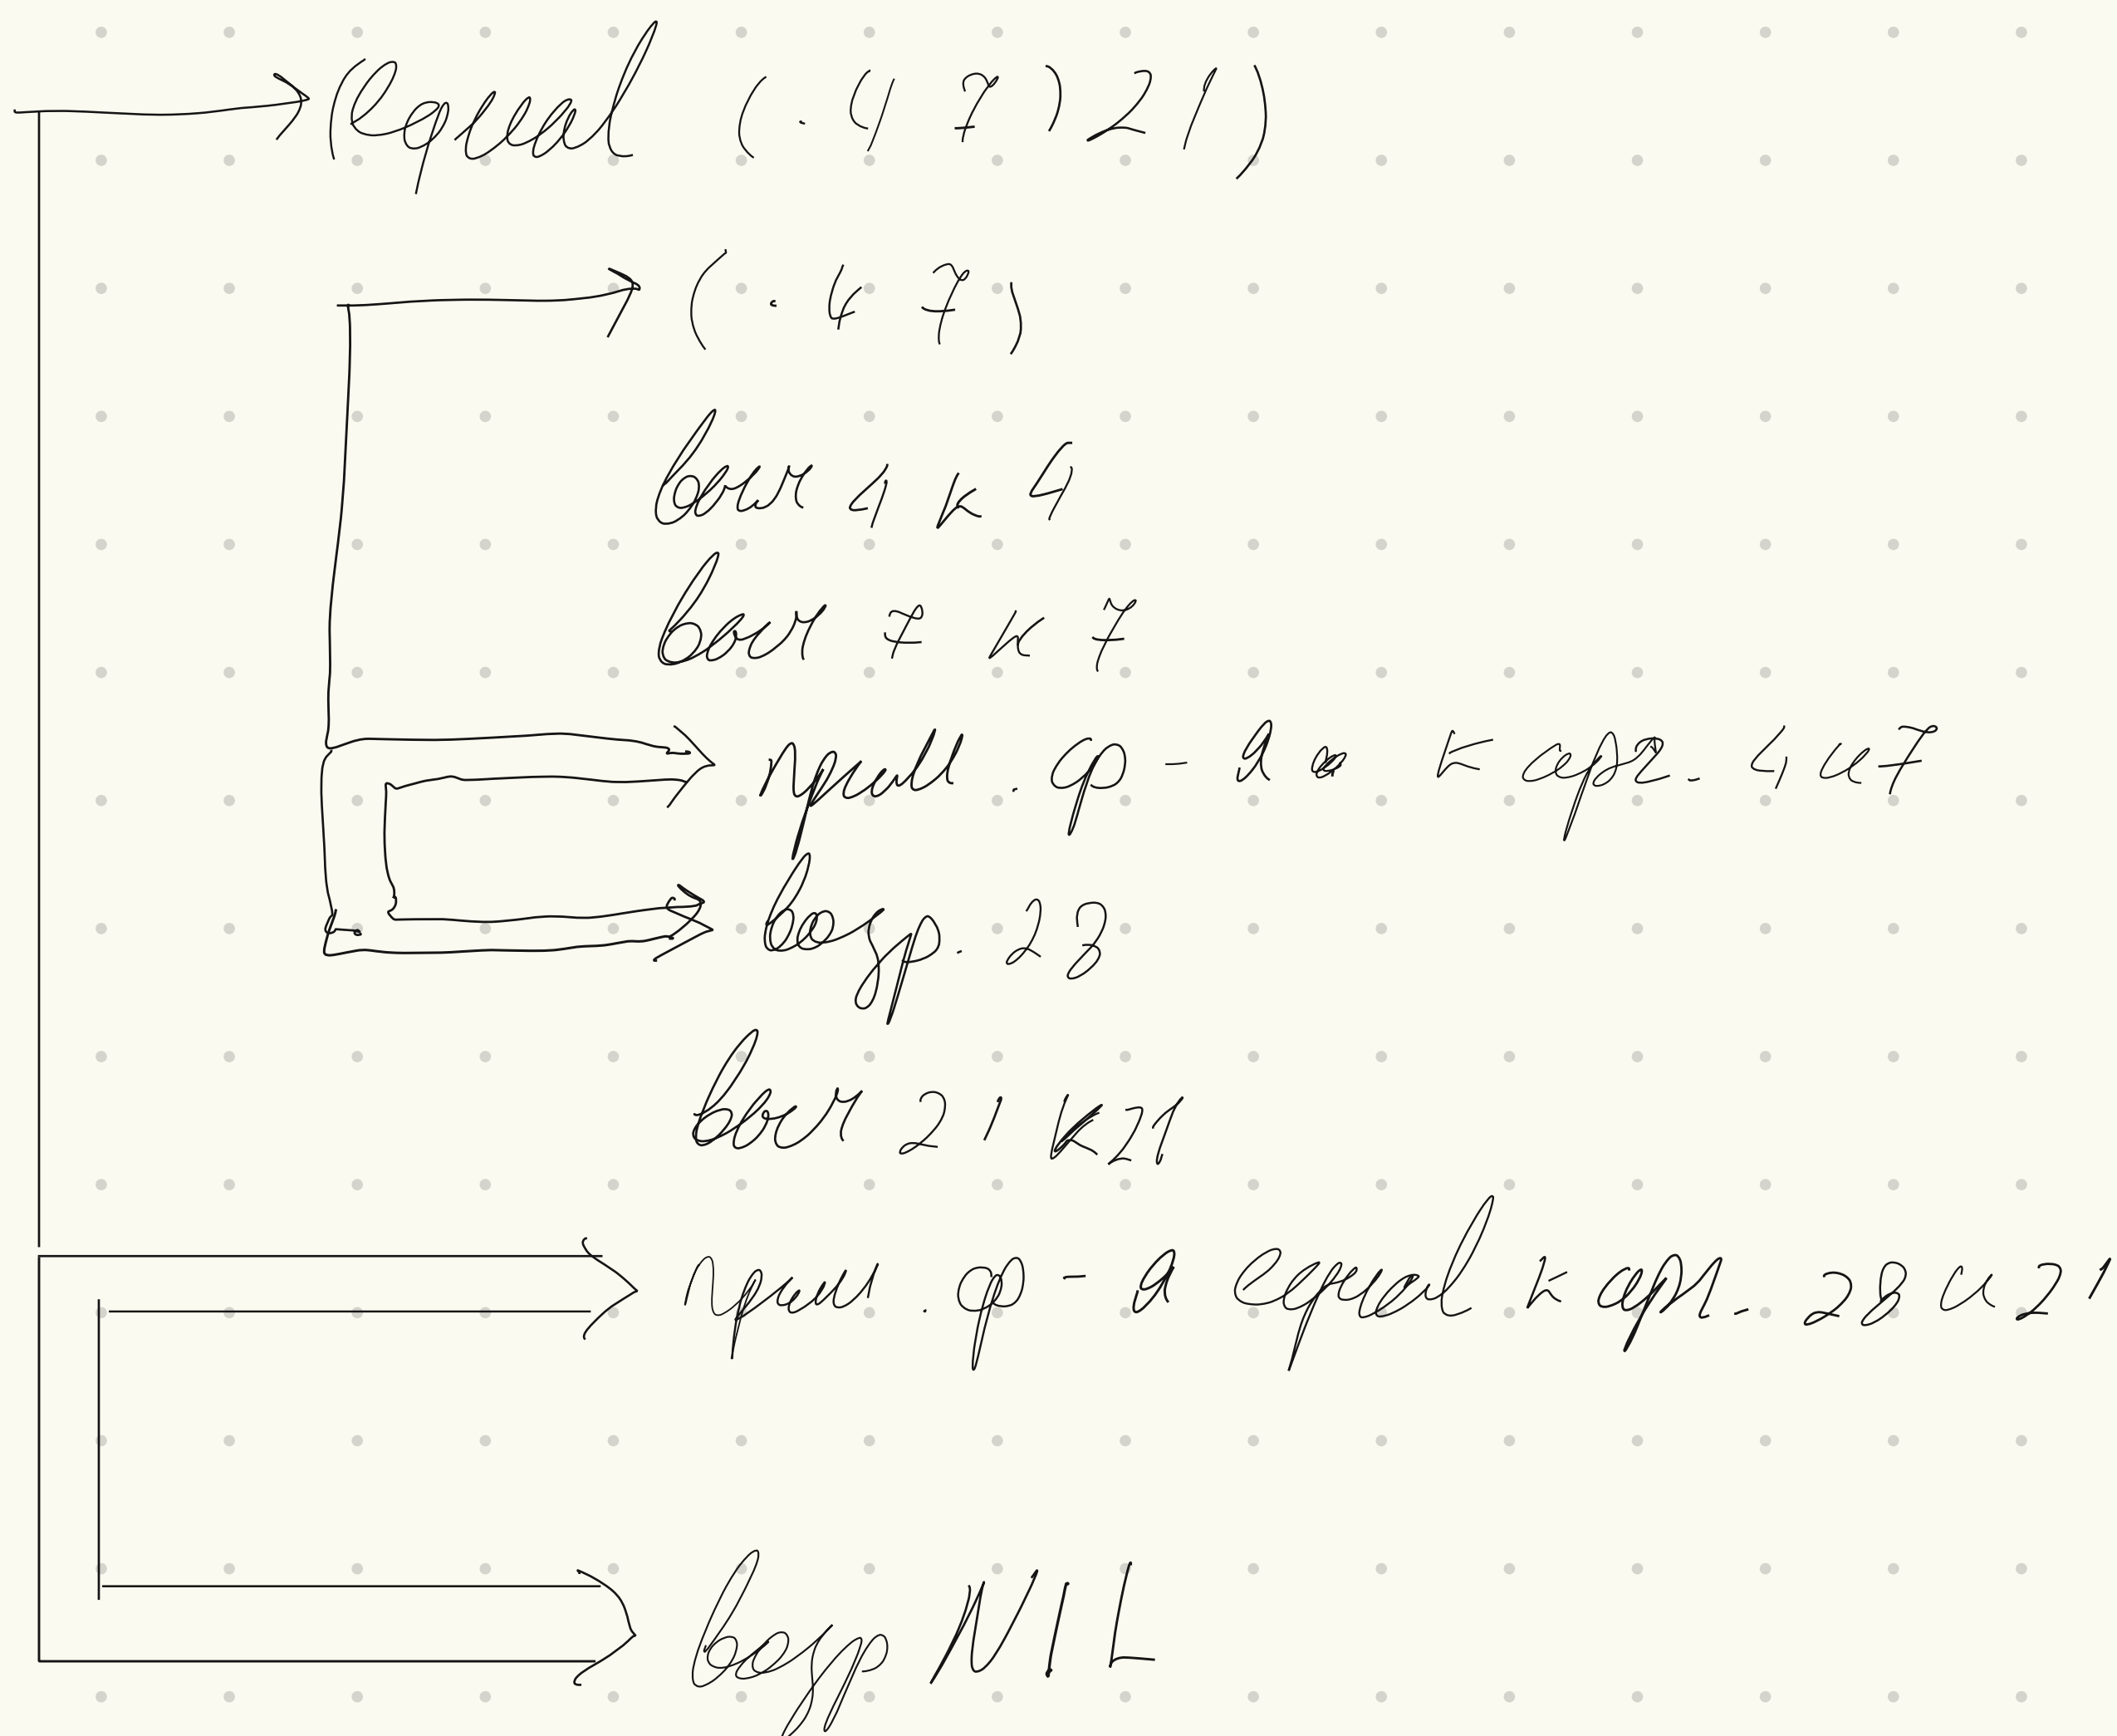 (equal (· 4 7) 21)
(· 4 7)
выч 4 к 4
выч 7 к 7
прим. ф-я к арг. 4 и 7
возвр. 28
выч 21 к 21
прим. ф-я equal к арг. 28 и 21
возвр NIL